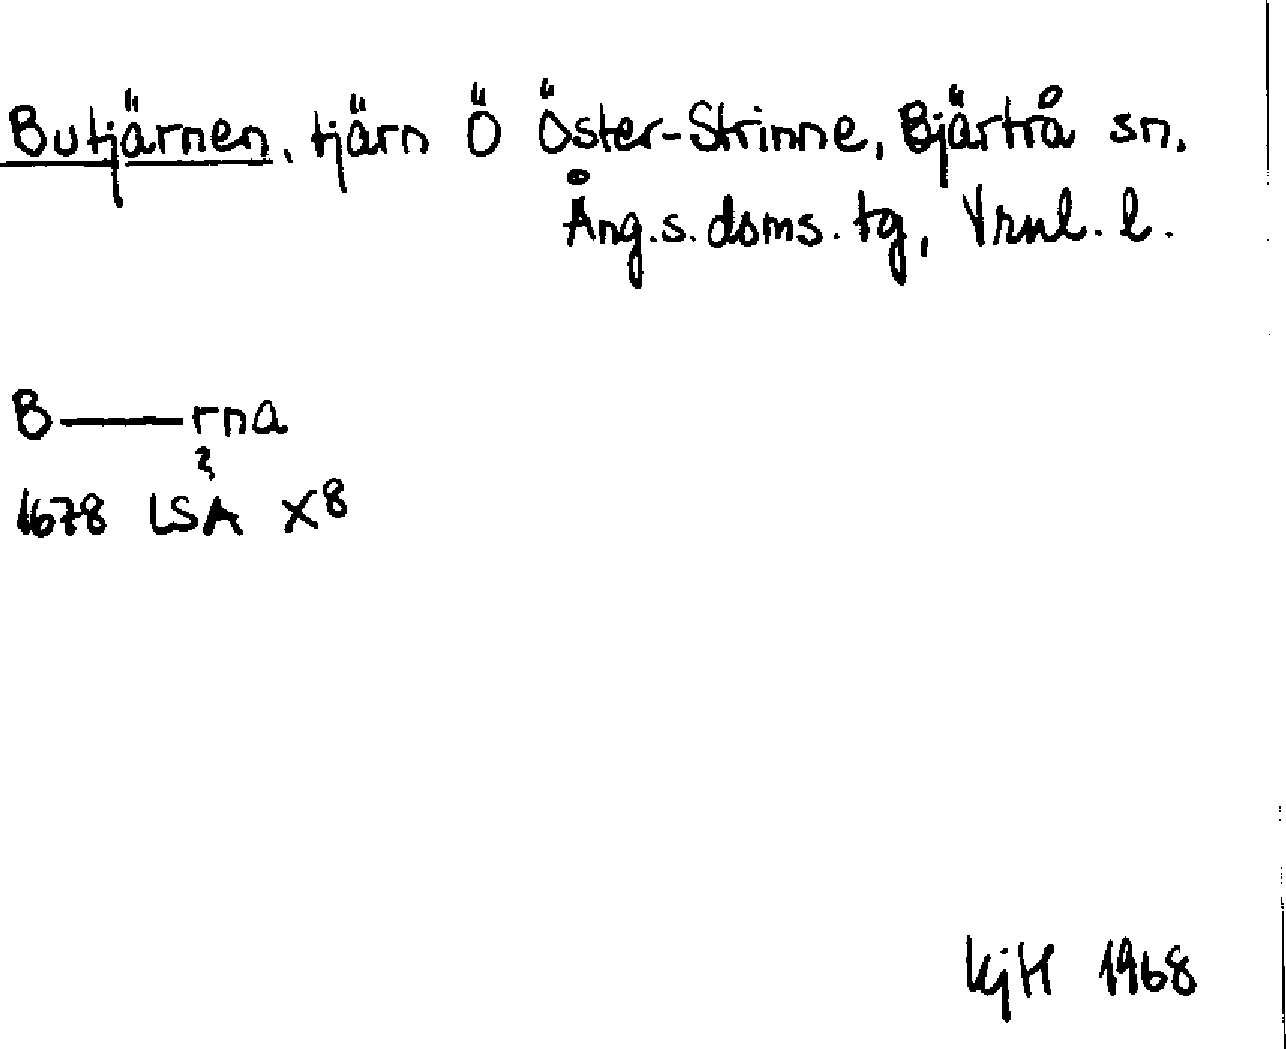 Butjärnen, tjärn Ö Öster-Strinne, Bjärtrå sn.
Ång.s.doms.tg, Vrnl. l.
B——rna
?
1678 LSA X8
KjH 1968